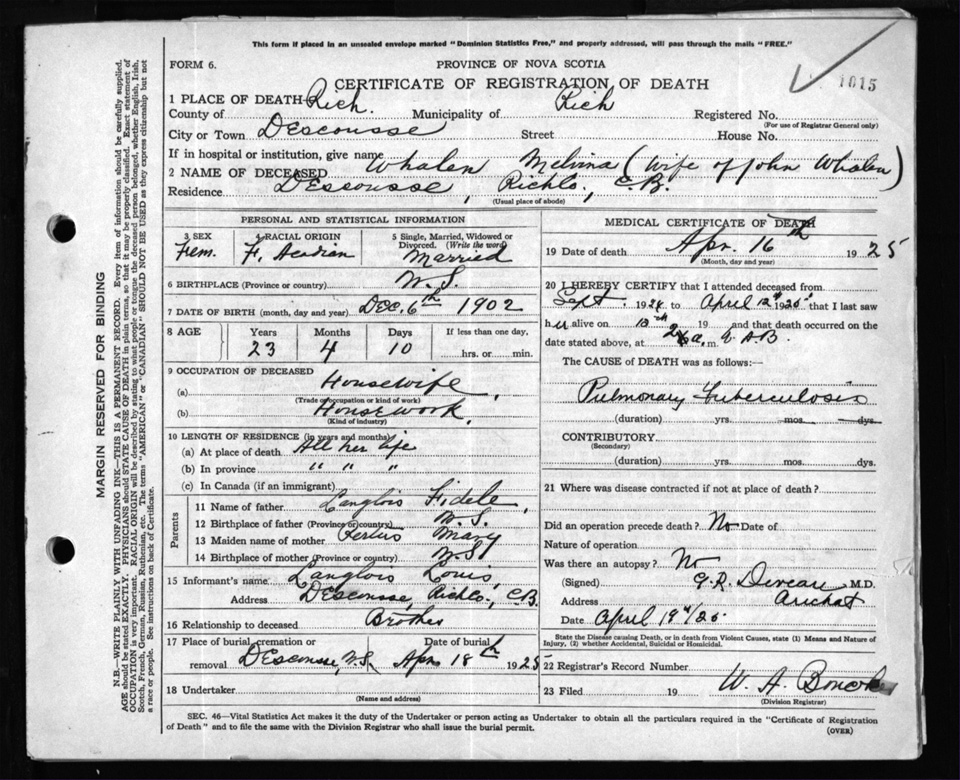 This form if placed in an unsealed envelope marked "Dominion Statistics Free," and properly addressed, will pass through the mails "FREE."
FORM 6.
PROVINCE OF NOVA SCOTIA
1015
CERTIFICATE OF REGISTRATION OF DEATH
1 PLACE OF DEATH
County of Rich. Municipality of Rich Registered No.
(For use of Registrar General only)
City or Town Descousse Street House No.
If in hospital or institution, give name
2 NAME OF DECEASED Whalen Melvina (Wife of John Whalen)
Residence Descousse, Richlo., C.B.
(Usual place of abode)
PERSONAL AND STATISTICAL INFORMATION
3 SEX Fem.
4 RACIAL ORIGIN F. Acadian
5 Single, Married, Widowed or Divorced. (Write the word) Married
6 BIRTHPLACE (Province or country) N.S.
7 DATE OF BIRTH (month, day and year) Dec. 6th 1902
8 AGE Years Months Days If less than one day,
23 4 10 hrs. or min.
9 OCCUPATION OF DECEASED
(a) Housewife,
(Trade or occupation or kind of work)
(b) Housework,
(Kind of industry)
10 LENGTH OF RESIDENCE (in years and months)
(a) At place of death All her life
(b) In province " " "
(c) In Canada (if an immigrant)
Parents
11 Name of father Langlois Fidele,
12 Birthplace of father (Province or country) N.S.
13 Maiden name of mother Mary
14 Birthplace of mother (Province or country) N.S.
15 Informant's name Langlois Louis,
Address Descousse, Richlo., C.B.
16 Relationship to deceased Brother
17 Place of burial, cremation or removal Descousse, N.S. Date of burial Apr. 18th 1925
18 Undertaker
(Name and address)
MEDICAL CERTIFICATE OF DEATH
19 Date of death Apr. 16th 1925
(Month, day and year)
20 I HEREBY CERTIFY that I attended deceased from
Sept. 1924 to April 12th 1925 that I last saw
her alive on 19 and that death occurred on
date stated above, at m.
The CAUSE OF DEATH was as follows:—
Pulmonary Tuberculosis
(duration) yrs. mos. dys.
CONTRIBUTORY
(Secondary)
(duration) yrs. mos. dys.
21 Where was disease contracted if not at place of death?
Did an operation precede death? No Date of
Nature of operation
Was there an autopsy? No
(Signed) G.R. Deveau M.D.
Address Arichat
Date April 19th/25
State the Disease causing Death, or in death from Violent Causes, state (1) Means and Nature of
Injury, (2) whether Accidental, Suicidal or Homicidal.
22 Registrar's Record Number
23 Filed 19 W. A.
(Division Registrar)
SEC. 46—Vital Statistics Act makes it the duty of the Undertaker or person acting as Undertaker to obtain all the particulars required in the "Certificate of Registration
of Death" and to file the same with the Division Registrar who shall issue the burial permit.
(OVER)
MARGIN RESERVED FOR BINDING
N.B.—WRITE PLAINLY WITH UNFADING INK—THIS IS A PERMANENT RECORD. Every item of information should be carefully supplied.
AGE should be stated EXACTLY. PHYSICIANS should STATE CAUSE OF DEATH in plain terms, so that it may be properly classified. Exact statement of
OCCUPATION is very important. RACIAL ORIGIN will be described by stating to what people or tongue the deceased person belonged, whether English, Irish,
Scotch, French, German, Russian, Ruthenian, etc. The terms "AMERICAN" or "CANADIAN" SHOULD NOT BE USED as they express citizenship but not
a race or people. See instructions on back of Certificate.